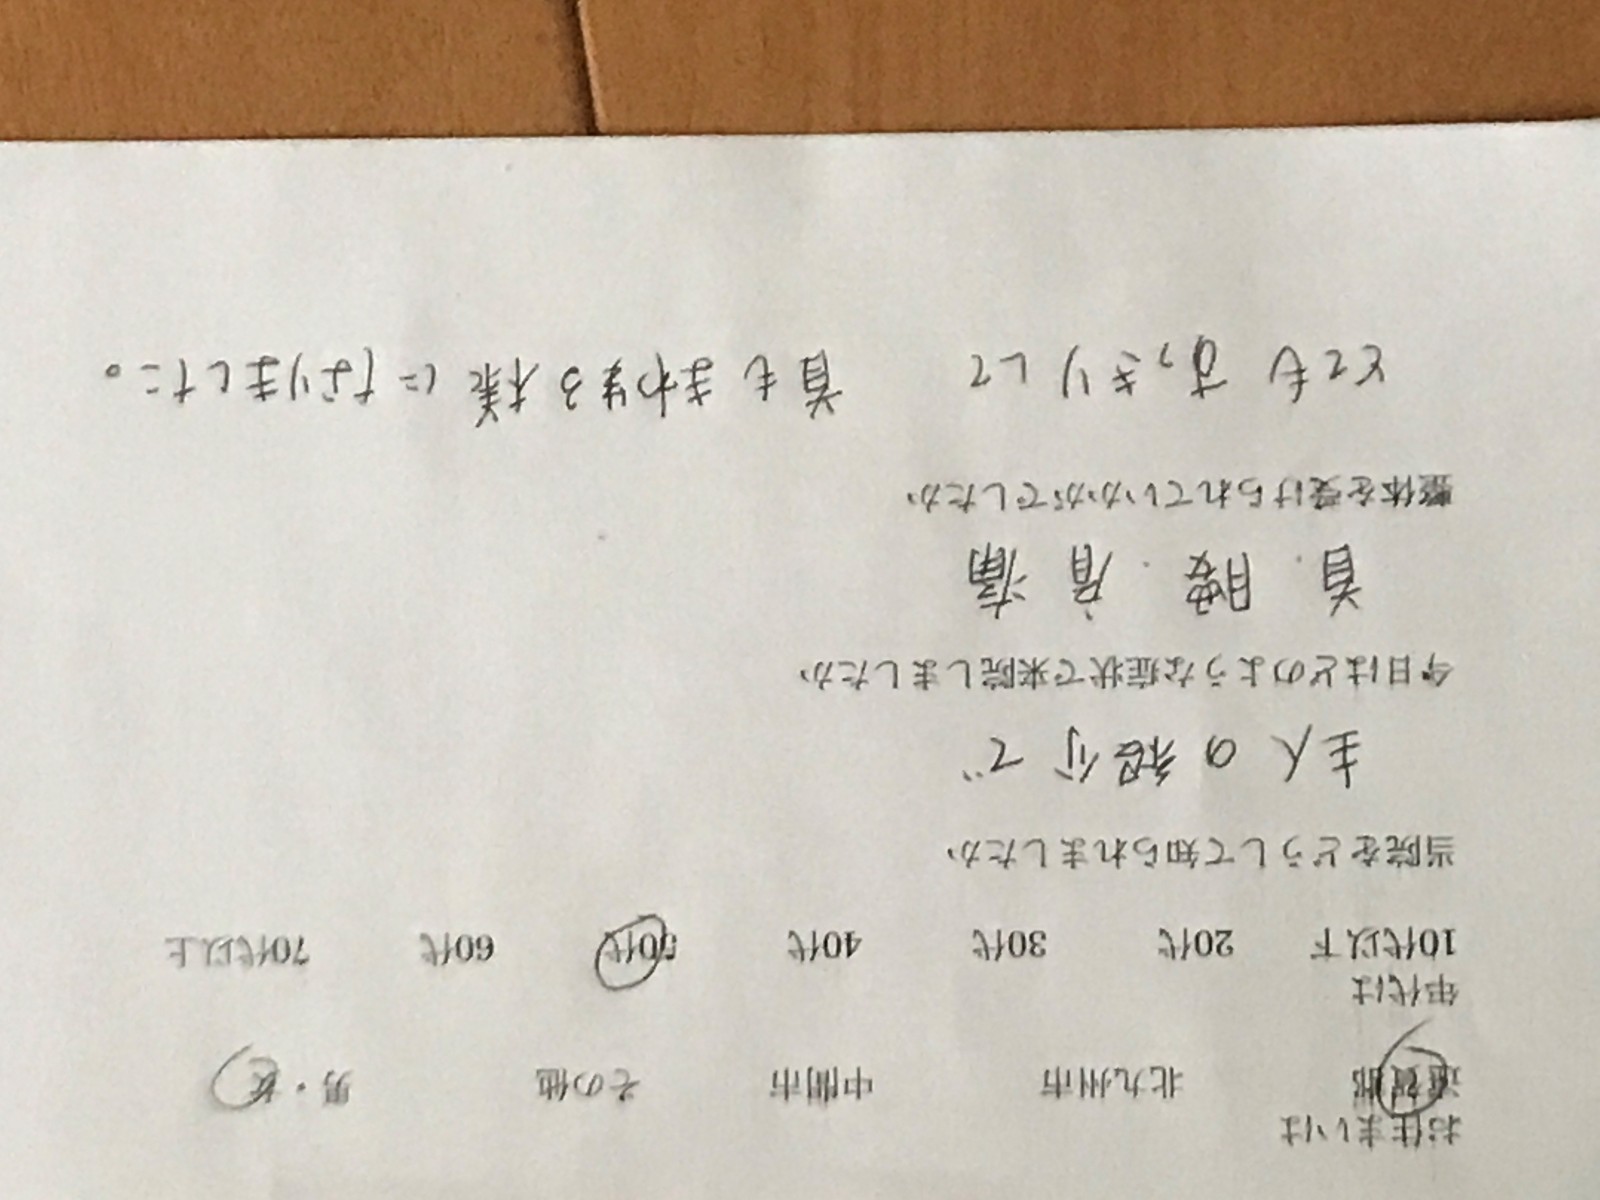 お住まいは
遠賀郡 北九州市 中間市 その他 男・女
年代は
10代以下 20代 30代 40代 50代 60代 70代以上
当院をどうして知られましたか
主人の紹介で
今日はどのような症状で来院しましたか
首・腰・肩痛
整体を受けられていかがでしたか
とてもすっきりして 首もまわせる様になりました。